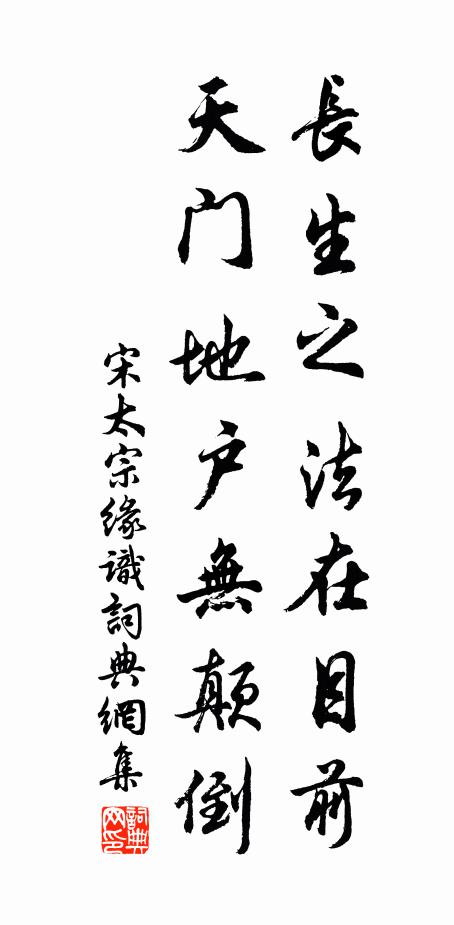 長生之法在目前
天门地户無顛倒
宋太宗緣識詞典網集
詞典网印